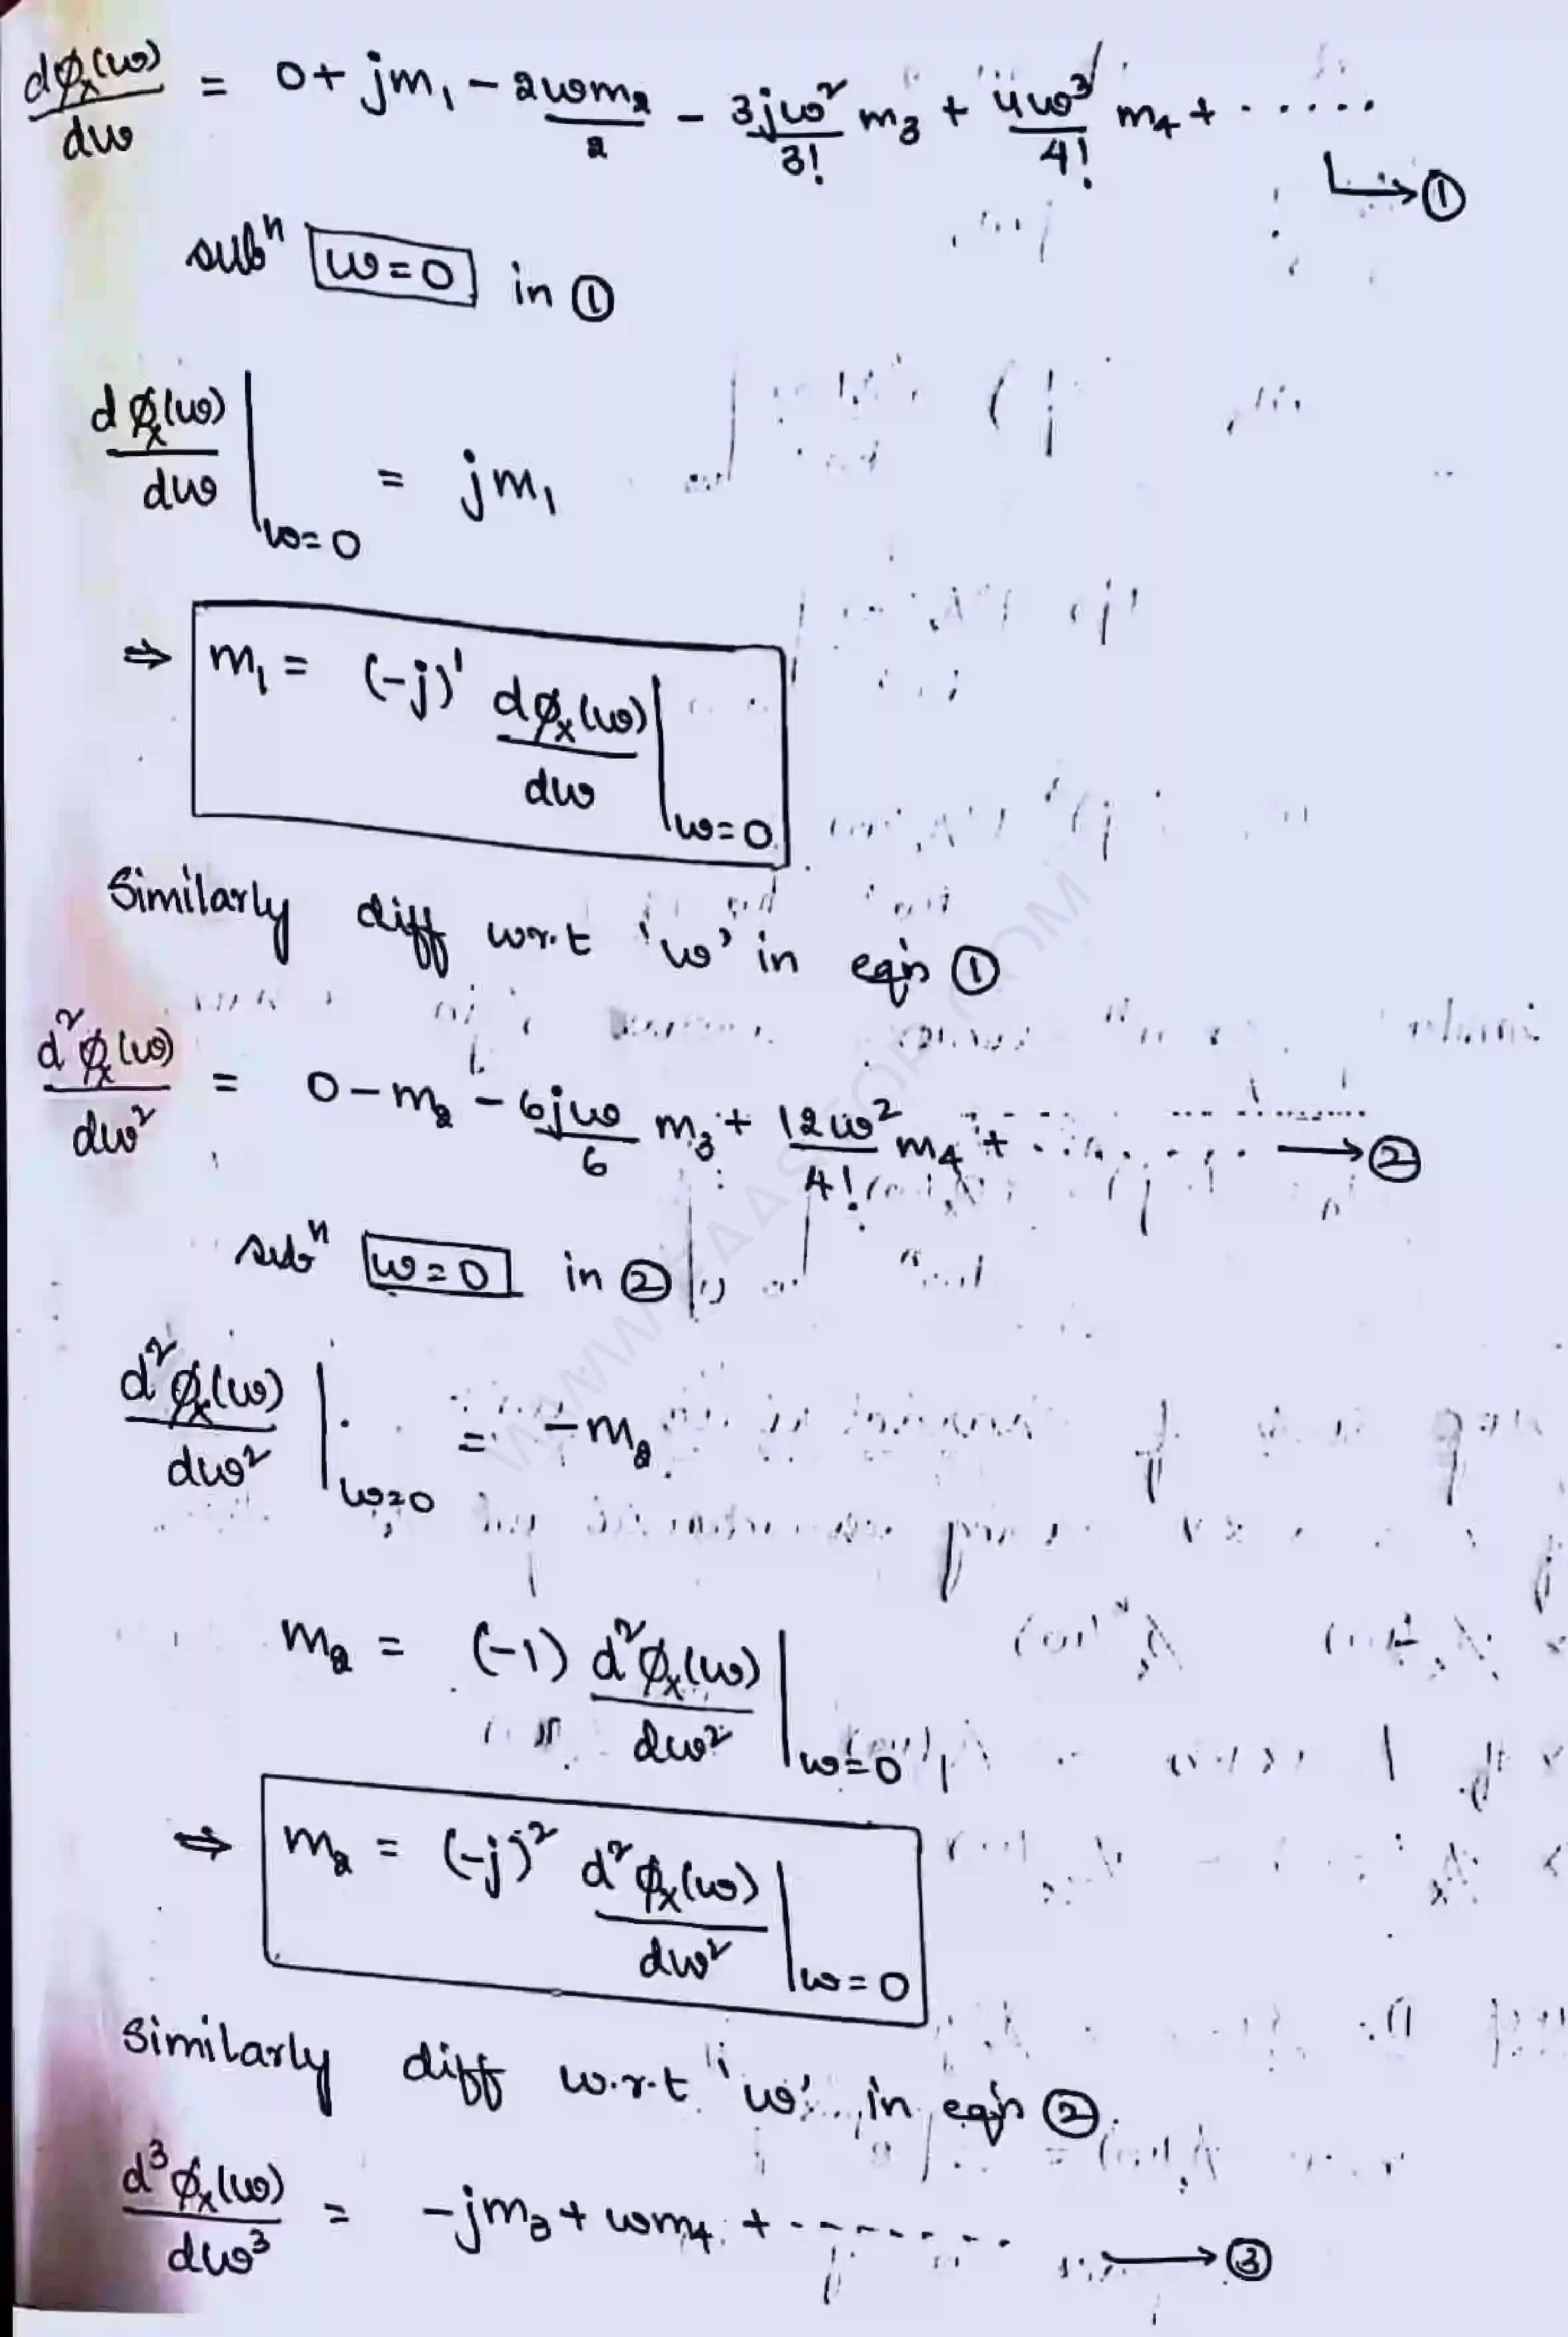 dφₓ(ω)/dω = 0 + jm₁ - 2ωm₂/2 - 3jω²/3! m₃ + 4ω³/4! m₄ + ...... → ①
subⁿ ω=0 in ①
dφₓ(ω)/dω |ω=0 = jm₁
⇒ m₁ = (-j)¹ dφₓ(ω)/dω |ω=0
Similarly diff w.r.t 'ω' in eqn ①
d²φₓ(ω)/dω² = 0 - m₂ - 6jω/6 m₃ + 12ω²/4! m₄ + ........ → ②
subⁿ ω=0 in ②
d²φₓ(ω)/dω² |ω=0 = -m₂
m₂ = (-1) d²φₓ(ω)/dω² |ω=0
⇒ m₂ = (-j)² d²φₓ(ω)/dω² |ω=0
Similarly diff w.r.t 'ω' in eqn ②.
d³φₓ(ω)/dω³ = -jm₃ + ωm₄ + ........ → ③